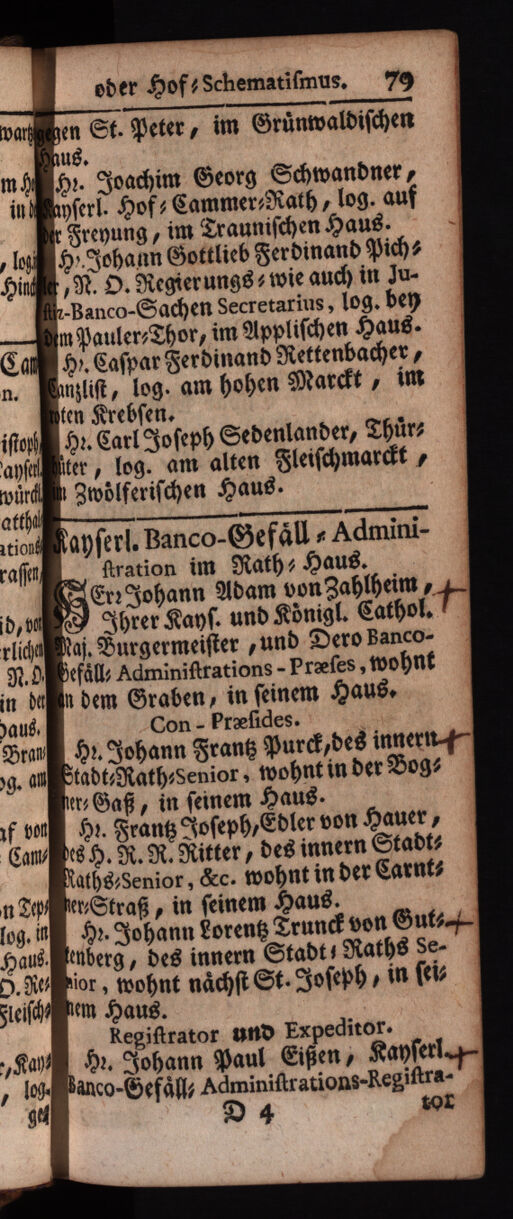 oder Hof⸗Schematismus. 79
gegen St. Peter, im Grünwaldischen
Haus.
Hr. Joachim Georg Schwandner,
Kayserl. Hof⸗Cammer⸗Rath, log. auf
der Freyung, im Traunischen Haus.
Hr. Johann Gottlieb Ferdinand Pich⸗
ler, N. O. Regierungs⸗wie auch in Ju-
stiz-Banco-Sachen Secretarius, log. bey
dem Pauler⸗Thor, im Applischen Haus.
Hr. Caspar Ferdinand Rettenbacher,
Canzlist, log. am hohen Marckt, im
roten Krebsen.
Hr. Carl Joseph Sedenlander, Thür⸗
hüter, log. am alten Fleischmarckt,
im Zwölferischen Haus.
Kayserl. Banco-Gefäll⸗Admini-
stration im Rath⸗Haus.
HErr Johann Adam von Zahlheim,
Ihrer Kays. und Königl. Cathol.
Maj. Burgermeister, und Dero Banco-
Gefäll⸗Administrations-Præses, wohnt
an dem Graben, in seinem Haus.
Con-Præsides.
Hr. Johann Frantz Purck, des innern
Stadt⸗Rath⸗Senior, wohnt in der Bog⸗
ner⸗Gaß, in seinem Haus.
Hr. Frantz Joseph, Edler von Hauer,
des H. R. R. Ritter, des innern Stadt⸗
Raths⸗Senior, &c. wohnt in der Carnt⸗
ner⸗Straß, in seinem Haus.
Hr. Johann Lorentz Trunck von Gut⸗
tenberg, des innern Stadt⸗Raths Se-
nior, wohnt nächst St. Joseph, in sei⸗
nem Haus.
Registrator und Expeditor.
Hr. Johann Paul Eißen, Kayserl.
Banco-Gefäll⸗Administrations-Registra-
D 4 tor